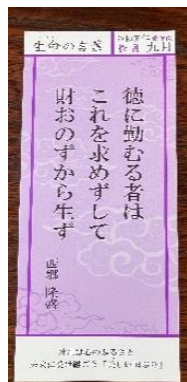 生命の言葉
九月
徳に勤むる者は
これを求めずして
財おのずから生ず
西郷 隆盛